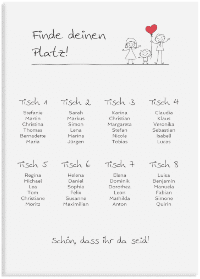 Finde deinen
Platz!
Tisch 1
Stefanie
Marin
Christina
Thomas
Bernadette
Maria
Tisch 2
Sarah
Markus
Simon
Lena
Marina
Jürgen
Tisch 3
Karina
Christian
Margarete
Stefan
Nicole
Tobias
Tisch 4
Claudia
Klaus
Veronika
Sebastian
Isabell
Lucas
Tisch 5
Regina
Michael
Lea
Tom
Christiane
Moritz
Tisch 6
Helena
Daniel
Sophia
Felix
Susanne
Maximilian
Tisch 7
Elena
Dominik
Dorothea
Leon
Mathilda
Anton
Tisch 8
Luisa
Benjamin
Manuela
Fabian
Simone
Quirin
Schön, dass ihr da seid!